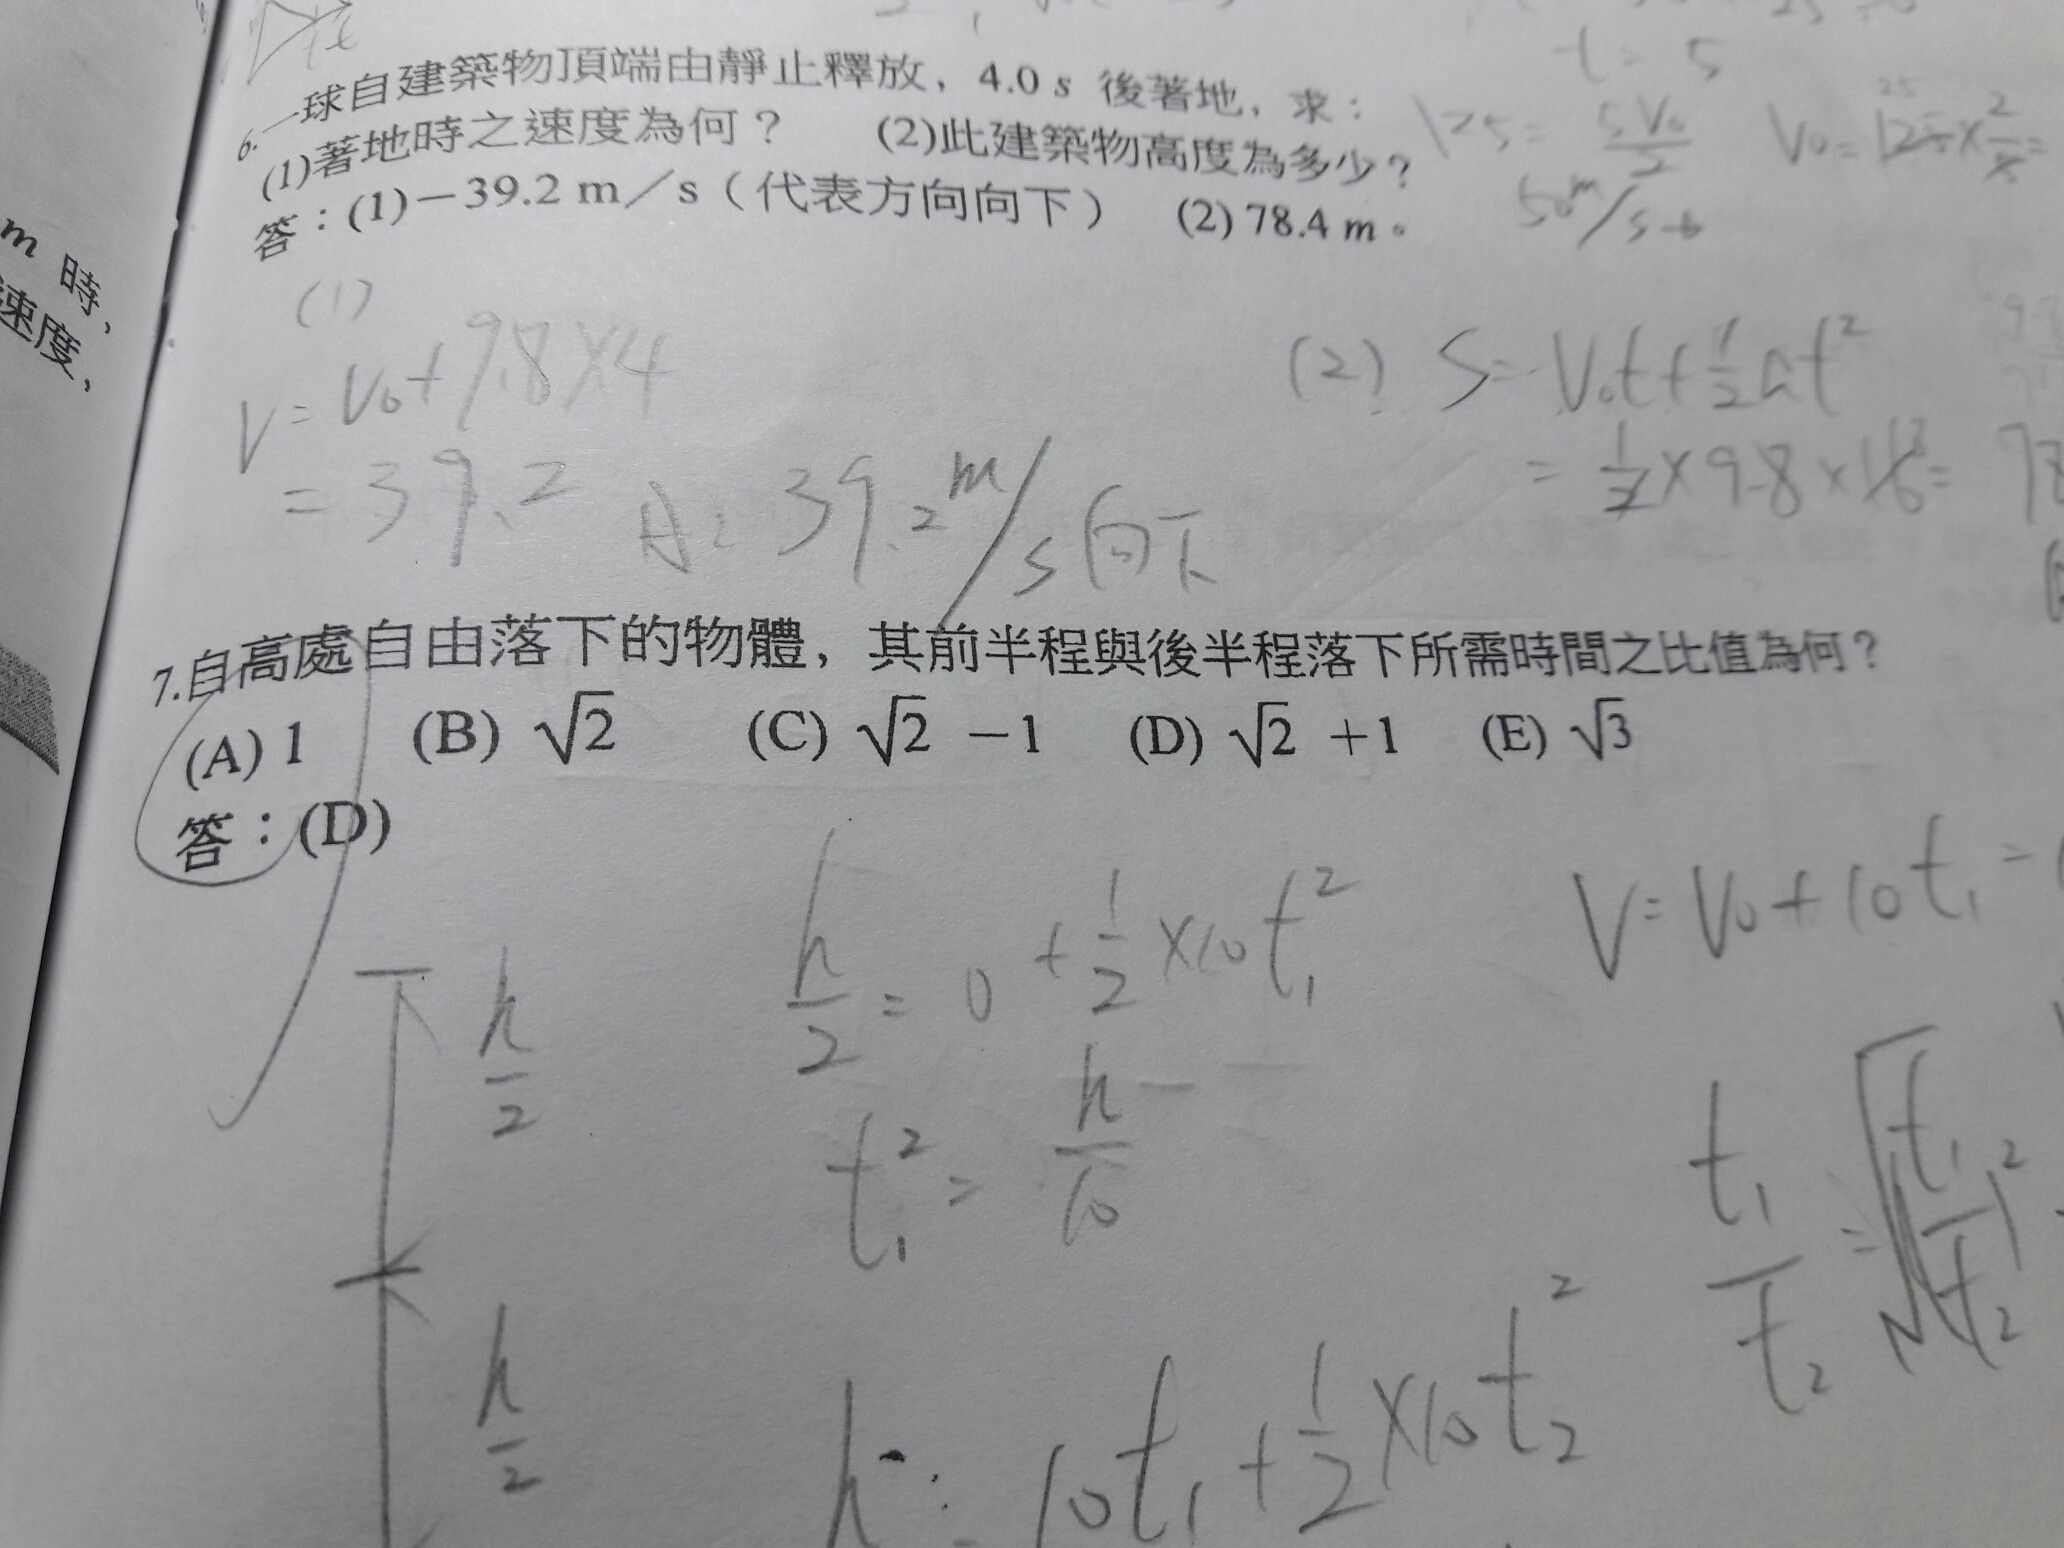 6.一球自建築物頂端由靜止釋放，4.0 s 後著地，求：
(1)著地時之速度為何？ (2)此建築物高度為多少？
答：(1)－39.2 m／s（代表方向向下） (2) 78.4 m。
t = 5
125 = 5V₀/2
50 m/s
m 時，
速度，
(1)
V = V₀ + 9.8×4
= 39.2 A: 39.2 m/s 向下
(2) S = V₀t + 1/2 at²
= 1/2 × 9.8 × 16 =
7.自高處自由落下的物體，其前半程與後半程落下所需時間之比值為何？
(A) 1 (B) √2 (C) √2 －1 (D) √2 ＋1 (E) √3
答：(D)
h/2
h/2 = 0 + 1/2 ×10 t₁²
V = V₀ + 10t₁ =
t₁² = h/10
t₁/t₂ =
h/2
h = 10t₁ + 1/2 ×10 t₂²